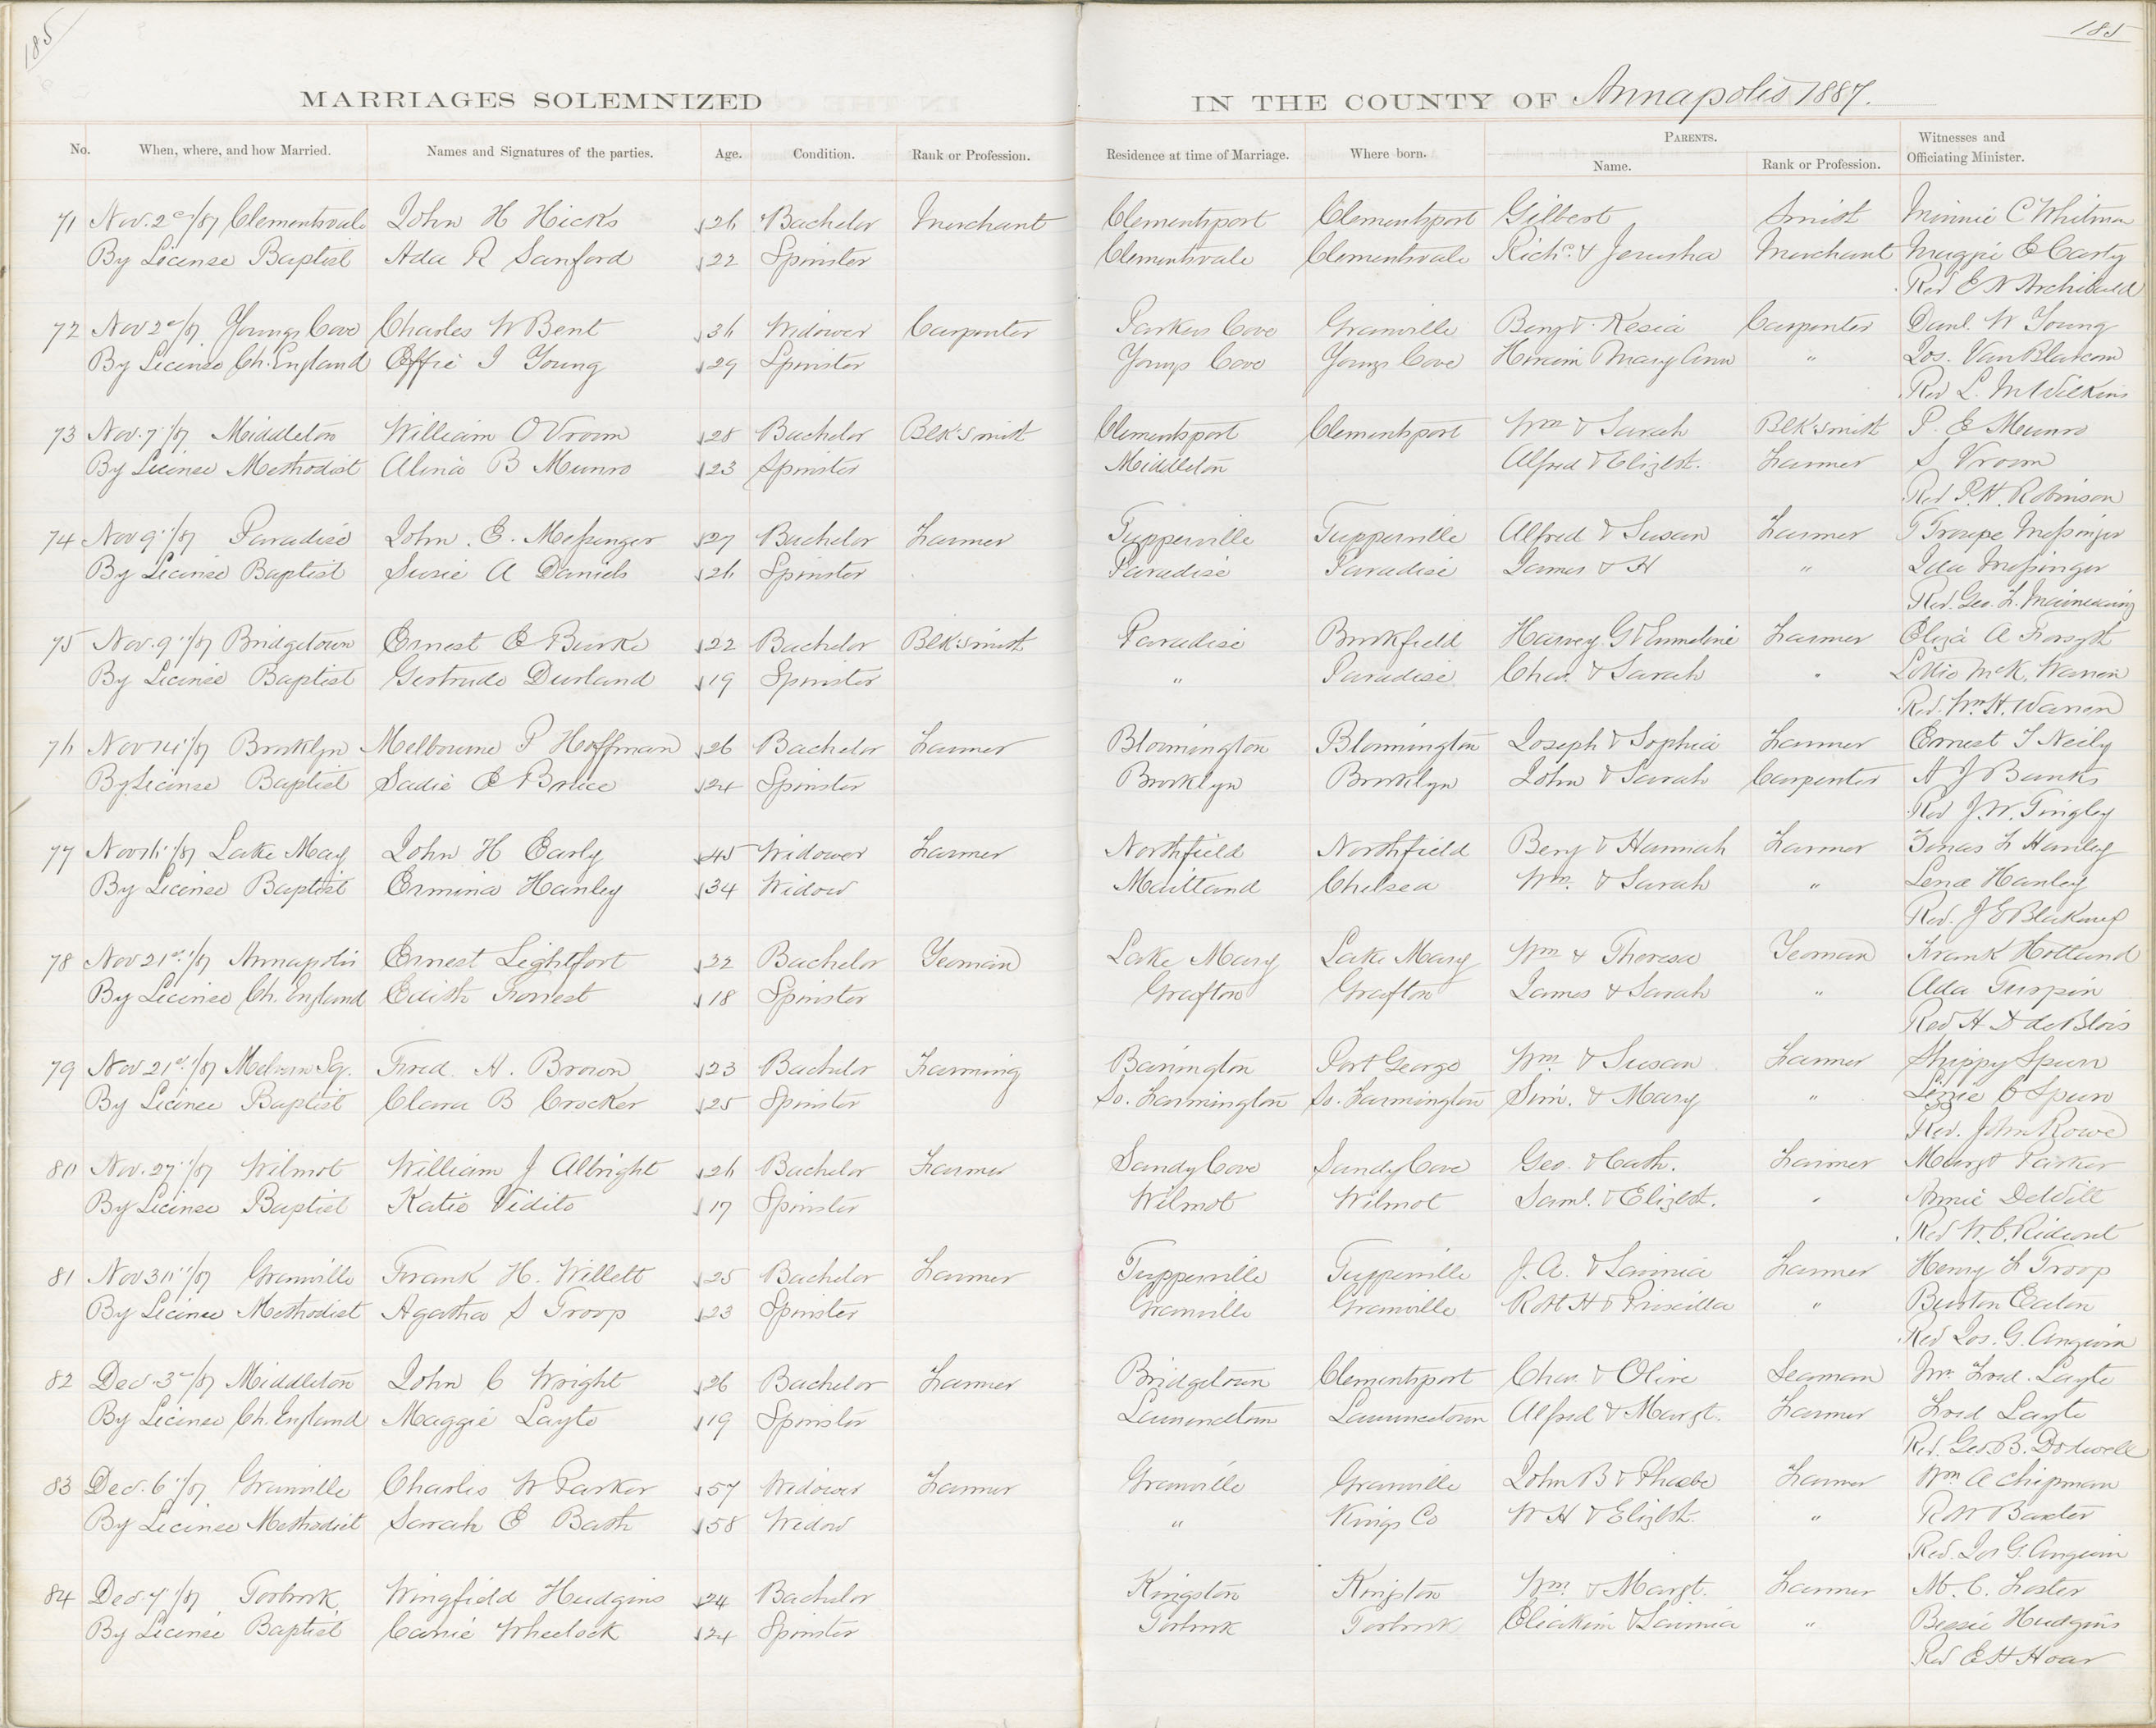 185
185
MARRIAGES SOLEMNIZED IN THE COUNTY OF Annapolis 1887.
No. When, where, and how Married. Names and Signatures of the parties. Age. Condition. Rank or Profession. Residence at time of Marriage. Where born. PARENTS. Name. Rank or Profession. Witnesses and Officiating Minister.
71 Nov. 2d/87 Clementsvale John H Hicks 26 Bachelor Merchant Clementsport Clementsport Gilbert Smith Minnie C Whitman
By License Baptist Ada R Sanford 22 Spinster Clementsvale Clementsvale Richd. & Jerusha Merchant Maggie E Carty
Rev E N Archibald
72 Nov 2d/87 Youngs Cove Charles W Bent 36 Widower Carpenter Parkers Cove Granville Benj & Kesia Carpenter Danl. W Young
By License Ch. England Effie I Young 29 Spinster Youngs Cove Youngs Cove Hiram & Mary Ann " Jos. VanBlarcom
Rev L. M Wilkins
73 Nov. 7"/87 Middleton William O Vroom 28 Bachelor Blk'smith Clementsport Clementsport Wm & Sarah Blk'smith P. E Munro
By License Methodist Alina B Munro 23 Spinster Middleton Alfred & Elizbt. Farmer S Vroom
Rev P. H. Robinson
74 Nov 9"/87 Paradise John. E. Messenger 27 Bachelor Farmer Tupperville Tupperville Alfred & Susan Farmer Messinger
By License Baptist Susie A Daniels 26 Spinster Paradise Paradise James & H " Ida Messinger
Rev. Geo. L.
75 Nov. 9"/87 Bridgetown Ernest E Burke 22 Bachelor Blk'smith Paradise Brookfield Harvey G & Emmeline Farmer Eliza A Forsyth
By License Baptist Gertrude Durland 19 Spinster " Paradise Chas. & Sarah " Lottie McK. Warren
Rev. Wm. H. Warren
76 Nov 14"/87 Brooklyn Melbourne P Hoffman 26 Bachelor Farmer Bloomington Bloomington Joseph & Sophia Farmer Ernest S Neily
By License Baptist Sadie E Bruce 24 Spinster Brooklyn Brooklyn John & Sarah Carpenter A J Banks
Rev J. W. Tingley
77 Nov 16"/87 Lake May John H Early 45 Widower Farmer Northfield Northfield Benj & Hannah Farmer Zenas L Hanley
By License Baptist Ermina Hanley 34 Widow Maitland Chelsea Wm. & Sarah " Lena Hanley
Rev. J E Blakney
78 Nov 21st/87 Annapolis Ernest Lightfoot 22 Bachelor Yeoman Lake Mary Lake Mary Wm & Theresa Yeoman Frank Holland
By License Ch. England Edith Forrest 18 Spinster Grafton Grafton James & Sarah " Ada Turpin
Rev. H D deBlois
79 Nov 21st/87 Melvern Sq. Fred. A. Brown 23 Bachelor Farming Barrington Port George Wm. & Susan Farmer Shippy Spurr
By License Baptist Clara B Crocker 25 Spinster So. Farmington So. Farmington Sim. & Mary " Lizzie C Spurr
Rev. John Rowe
80 Nov. 27"/87 Wilmot William J Albright 26 Bachelor Farmer Sandy Cove Sandy Cove Geo. & Cath. Farmer Margt Parker
By License Baptist Katie Vidito 17 Spinster Wilmot Wilmot Saml. & Elizbt. " Annie DeWitt
Rev W. C. Rideout
81 Nov 30"/87 Granville Frank H. Willett 25 Bachelor Farmer Tupperville Tupperville J. A. & Lavinia Farmer Henry L Troop
By License Methodist Agatha S Troop 23 Spinster Granville Granville Robt H & Priscilla " Burton Eaton
Rev Jos. G. Angwin
82 Dec. 3d/87 Middleton John C Wright 26 Bachelor Farmer Bridgetown Clementsport Chas. & Olive Seaman Mrs. Fred. Layte
By License Ch. England Maggie Layte 19 Spinster Lawrencetown Lawrencetown Alfred & Margt. Farmer Fred Layte
Rev. Geo. B. Dodwell
83 Dec. 6"/87 Granville Charles W Parker 57 Widower Farmer Granville Granville John B & Phoebe Farmer Wm A Chipman
By License Methodist Sarah E Bath 58 Widow " Kings Co W H & Elizbt. " R W Baxter
Rev. Jos G. Angwin
84 Dec. 7"/87 Torbrook Wingfield Hudgins 24 Bachelor Kingston Kingston Wm. & Margt. Farmer M. C. Foster
By License Baptist Carrie Wheelock 24 Spinster Torbrook Torbrook Eliakim & Lavinia " Bessie Hudgins
Rev E H Hoar